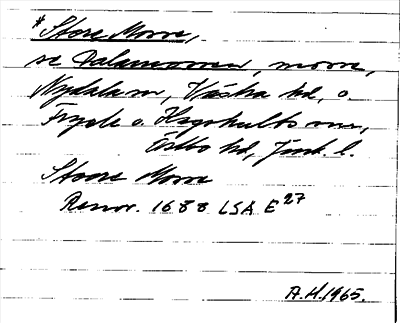 *Store Mosse,
se Dalamossen, mosse,
Nydala sn, Västra hd, o.
Fryele o. Hagshults snr,
Östbo hd, Jönk. l.
Stoore Mosse
Rannr. 1688 LSA E27
A.H. 1965.